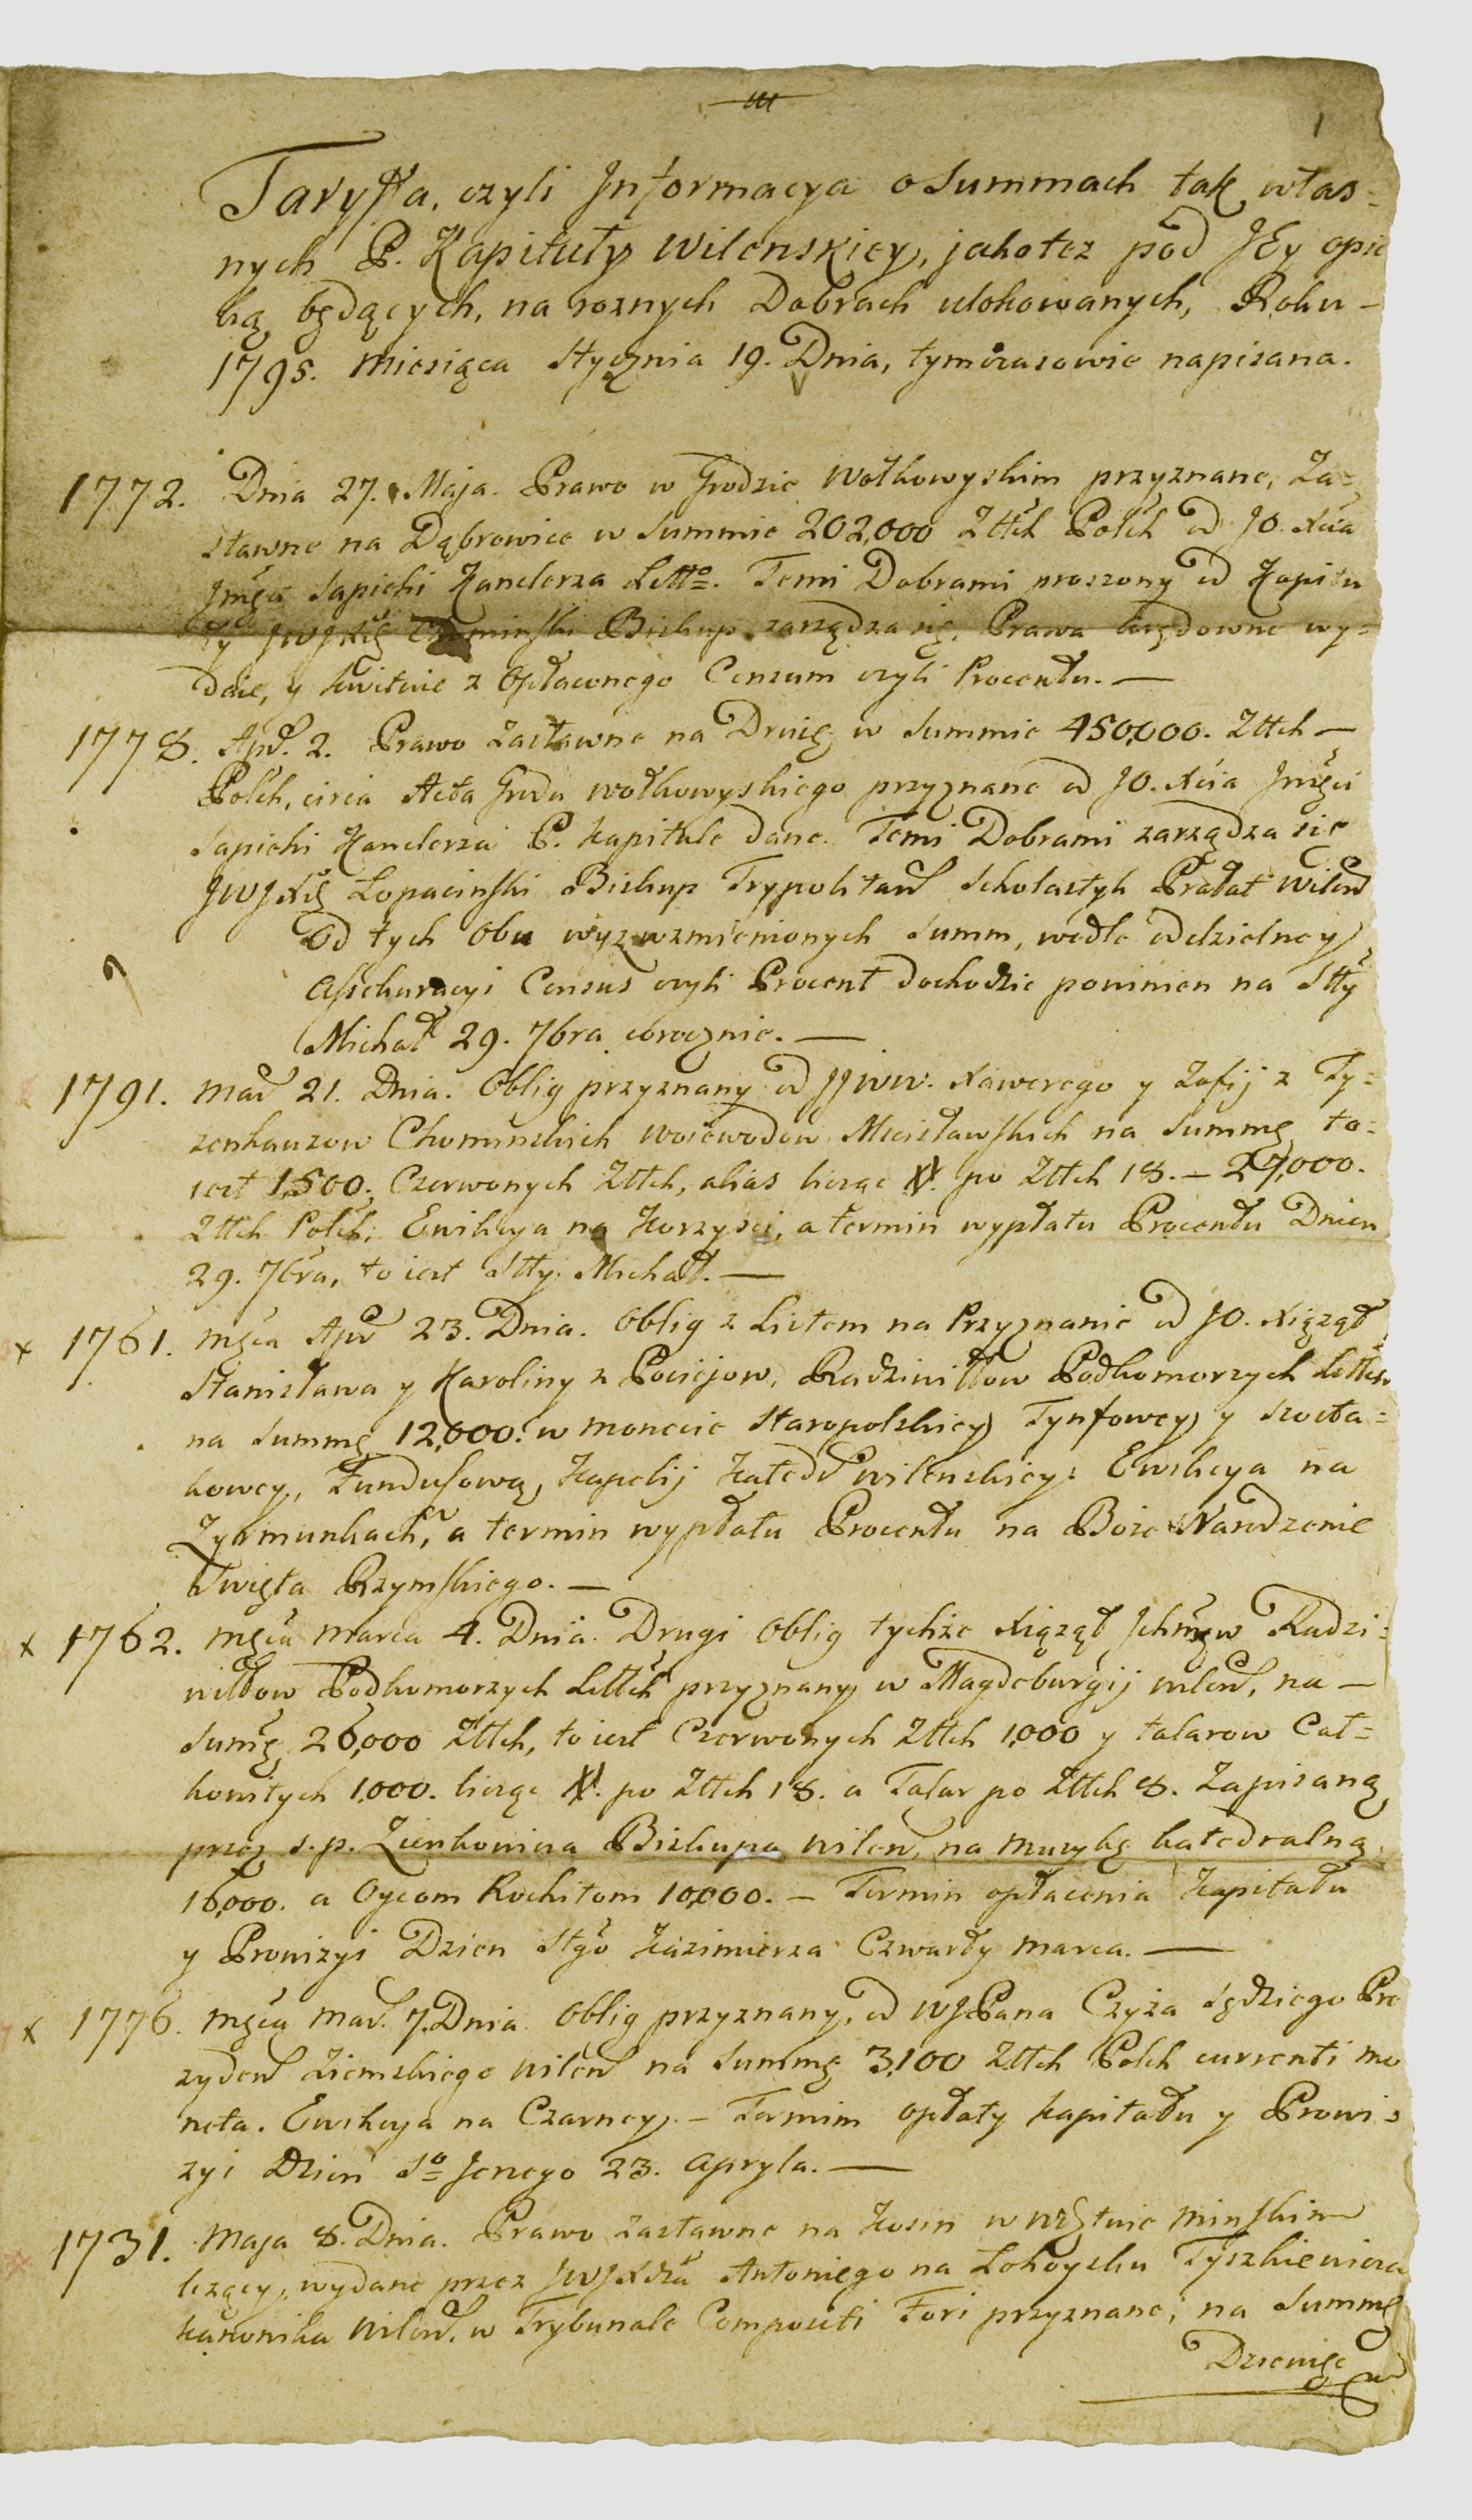 1
Taryffa, czyli Informacya o Summach tak włas=
nych P. Kapituły Wilenskiey, jakotez pod JEy opie
ką będących, na roznych Dobrach ulokowanych, Roku –
1795. Miesiąca Stycznia 19. Dnia, tymczasowie napisana.
1772. Dnia 27. Maja. Prawo w Grodzie Wołkowyskim przyznane, Za=
stawne na Dąbrowice w Summie 202,000 Złłch Polch od JO. Xcia
Jmści Sapiehi Kanclerza Litto. Temi Dobrami proszony od Kapitu
ły JWJXdz Biskup zarządza się. Prawa arędowne wy=
daie, y kwituie z Opłaconego Censum czyli Procentu. —
1778. Apr. 2. Prawo Zastawne na Druię w Summie 450,000. Złłch —
Polch, circa Acta Grodu wołkowyskiego przyznane od JO. Xcia Jmści
Sapiehi Kanclerza P. Kapitule dane. Temi Dobrami zarządza się
JWJXdz Łopacinski Biskup Trypolitań Scholastyk Prałat Wileń
Od tych obu wyz wzmienionych Summ, wedle oddzielney
Assekuracyi Census czyli Procent dochodzic powinien na Stty
Michał 29. 7bra corocznie. —
1791. Mar 21. Dnia. Oblig przyznany od JJWW. Xawerego y Zofij z Ty=
zenhauzow Chominskich Woiewodow Mscisławskich na Summę to=
iest 1,500. Czerwonych Złłch, alias licząc #. po Złłch 18. – 27,000.
Złłch Polch. Ewikcya na Korzysci, a termin wypłatu Procentu Dnien
29. 7bra, to iest Stty. Michał. —
x 1761. Mscá Apr 23. Dnia. Oblig z Listem na Przyznanie od JO. Xiąząt
Stanisława y Karoliny z Pociejow, Radziwiłłow Podkomorzych Litters
na Summę 12,000. w monecie Staropolskiey Tynfowey y Szosta=
kowey, Fundusową Kapelij Kated Wilenskiey. Ewikcya na
Zyrmunkach, a termin wypłatu Procentu na Boże Narodzenie
Swięta Rzymskiego. —
x 1762. Mscá Marca 4. Dnia. Drugi Oblig tychże Xiąząt Jchmsw Radzi=
wiłłow Podkomorzych Littch przyznany w Magdeburgij wileń, na —
Summę 26,000 Złłch, to iest Czerwonych Złłch 1,000 y talarow Cał=
kowitych 1,000. licząc #. po Złłch 18. a Talar po Złłch 8. Zapisaną
przez s.p. Zienkowicza Biskupa Wileń, na Muzykę katedralną
16,000. a Oycom Rochitom 10,000. – Termin opłacenia Kapitału
y Prowizyi Dzien Stgo Kazimierza Czwarty Marca. —
x 1776. Mscá Mar. 7. Dnia. Oblig przyznany, od WJPana Czyża Sędziego Pre
zydeń Ziemskiego Wileń na Summę 3,100 Złłch Polch currenti mo
neta. Ewikcya na Czarney. – Termin opłaty Kapitału y Prowi=
zyi Dzień So Jerzego 23. Apryla. —
1731. Maja 8. Dnia. Prawo zastawne na Kosin w Wdztwie Minskim
leżący, wydane przez JWJXdza Antoniego na Łohoysku Tyszkiewicza
Kanonika Wileń. w Trybunale Compositi Fori przyznane, na Summę
Dziewięc